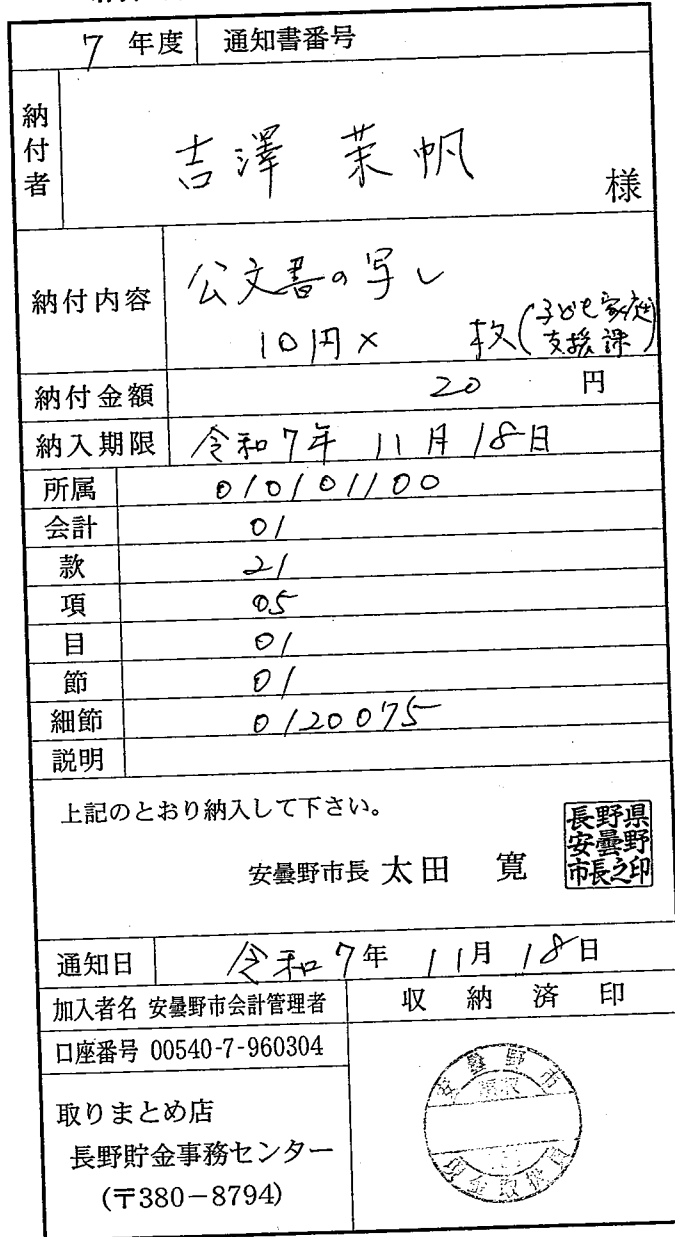 7 年度 通知書番号
納付者 吉澤 茉帆 様
納付内容 公文書の写し
10円× 枚(子ども家庭支援課)
納付金額 20 円
納入期限 令和7年 11月 18日
所属 010101100
会計 01
款 21
項 05
目 01
節 01
細節 0120075
説明
上記のとおり納入して下さい。
安曇野市長 太田 寛
長野県安曇野市長之印
通知日 令和7年 11月 18日
加入者名 安曇野市会計管理者
収納済印
口座番号 00540-7-960304
取りまとめ店
長野貯金事務センター
(〒380-8794)
安曇野市
現金取扱員